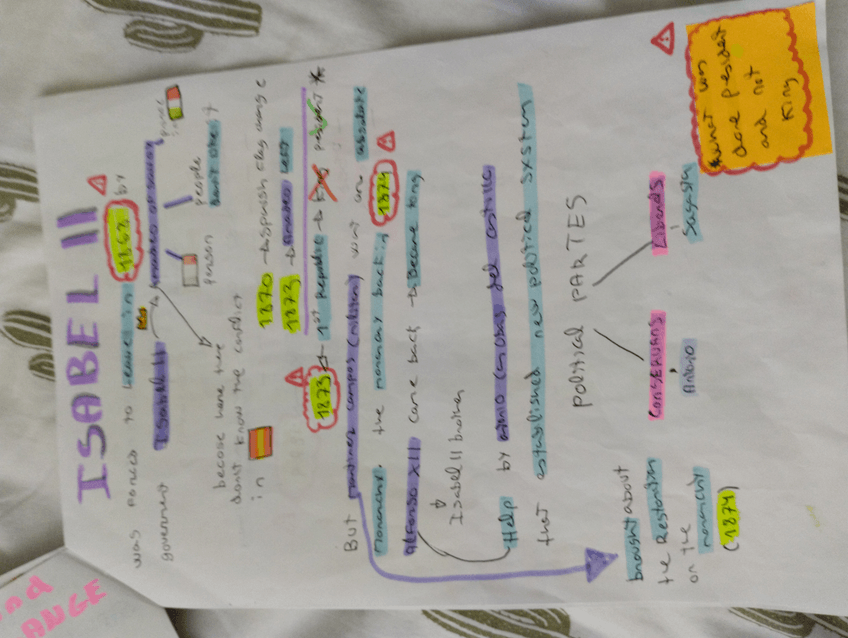 ISABEL II
was forced to leave in 1868 by
government
Isabel II → Amadeo of Savoy
prince
in
person
people
don't like it
becose here they
don't know the conflict
in
1870 → Spanish flag change
1873 → Amadeo left
1873 → 1st Republic → King president
But Martinez Campos (military) want an absolute
monarchy. the monarchy back in 1874
Alfonso XII came back → Became King
Isabel II brother
Help by Antonio Canovas del Castillo
that established new political system
POLITICAL PARTES
CONSERVATIVS
Antonio
Liberals
Sagasta
brought about
the Restoration
of the
monarchy
(1874)
what was
done president
and not
King
and
ANGE